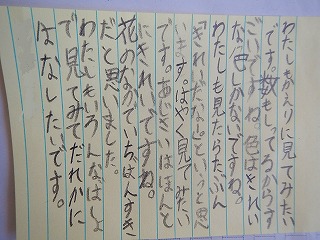 わたしもかえりに見てみたい
です。数もしってるからす
ごいですね。色はきれい
な色しかないですね。
わたしも見たらたぶん
「きれいだな」といっと思
います。はやく見てみたい
です。あじさいはほんと
にきれいですね。
花のなかでいちばんすき
だと思いました。
わたしもいろんなばしょ
で見てみてだれかに
はなしたいです。